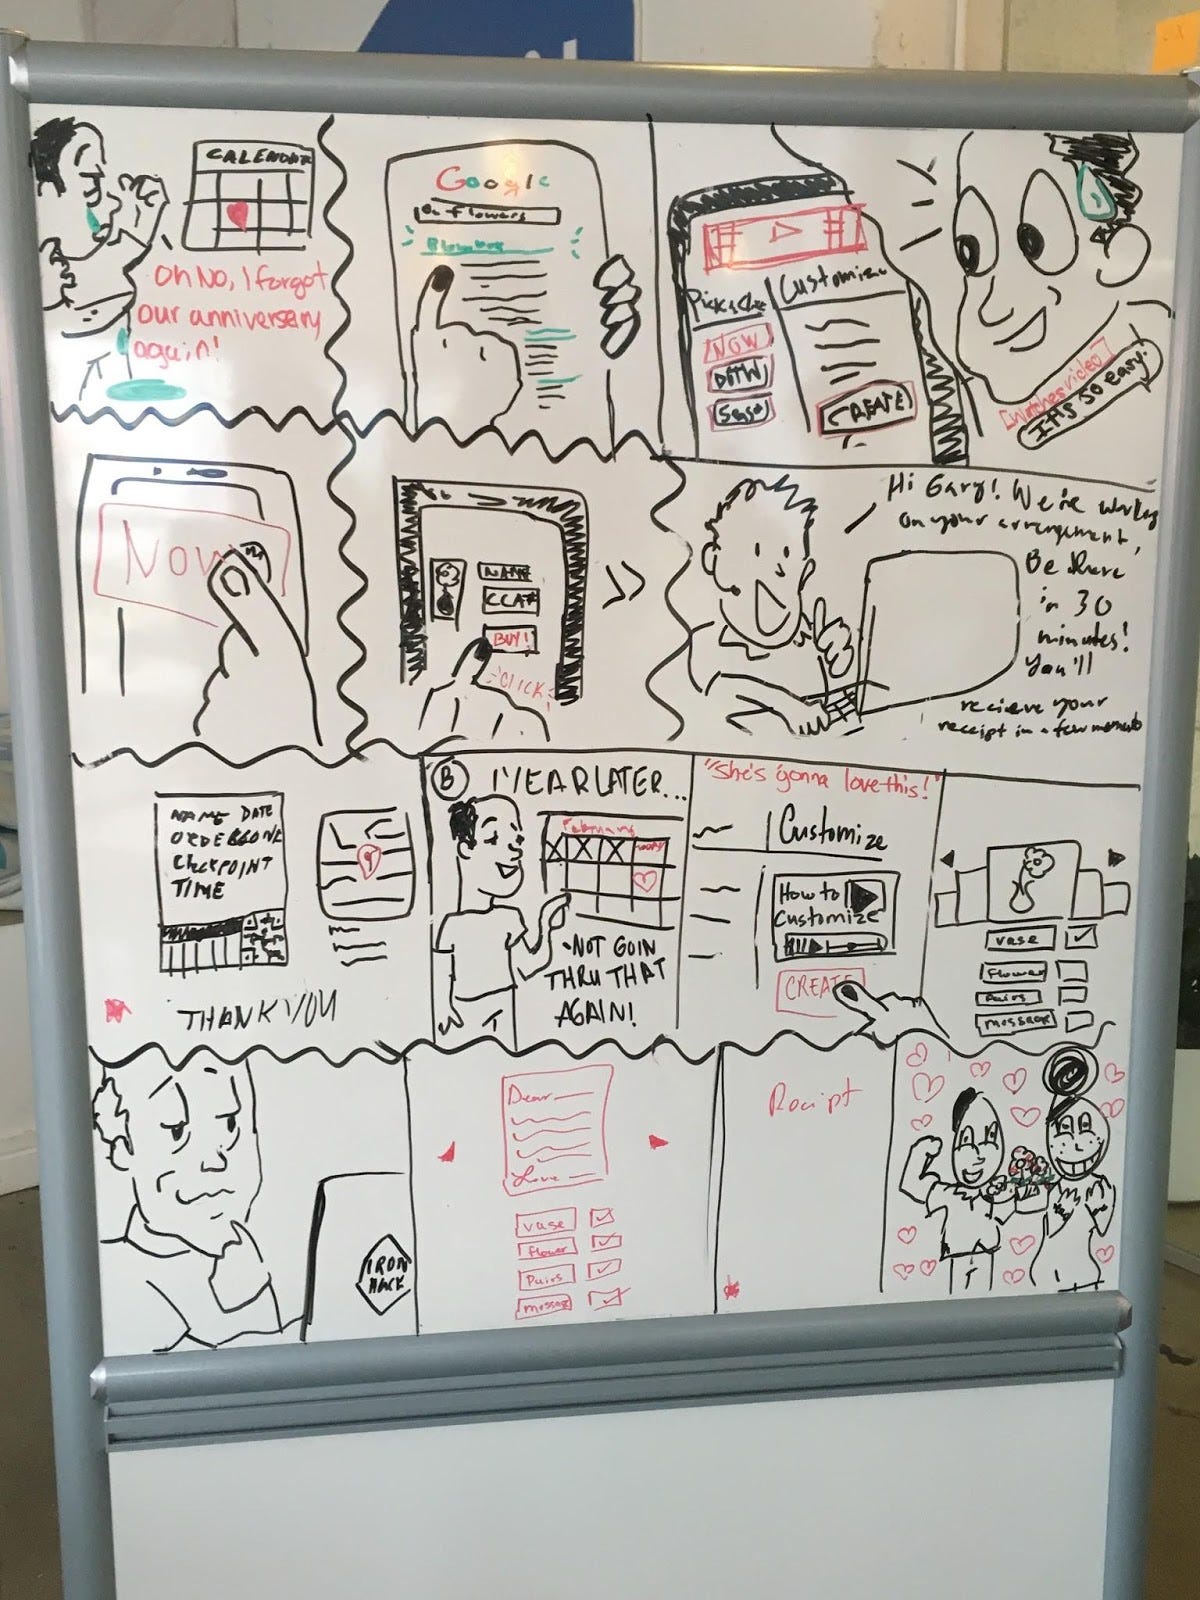 CALENDAR
Oh No, I forgot
our anniversary
again!
Google
flowers
Pick a
Customize
NOW
CREATE
[Watches video]
It's so easy.
Now
NAME
BUY!
CLICK
Hi Gary! We're working
on your arrangement,
Be there
in 30
minutes!
You'll
recieve your
receipt in a few moments
NAME DATE
CHECKPOINT
TIME
THANK YOU
B
1 YEAR LATER...
-NOT GOIN
THRU THAT
AGAIN!
"She's gonna love this!"
Customize
How to
Customize
CREATE
vase
flower
Pairs
message
IRON
HACK
Dear
Love
vase
flower
Pairs
message
Receipt